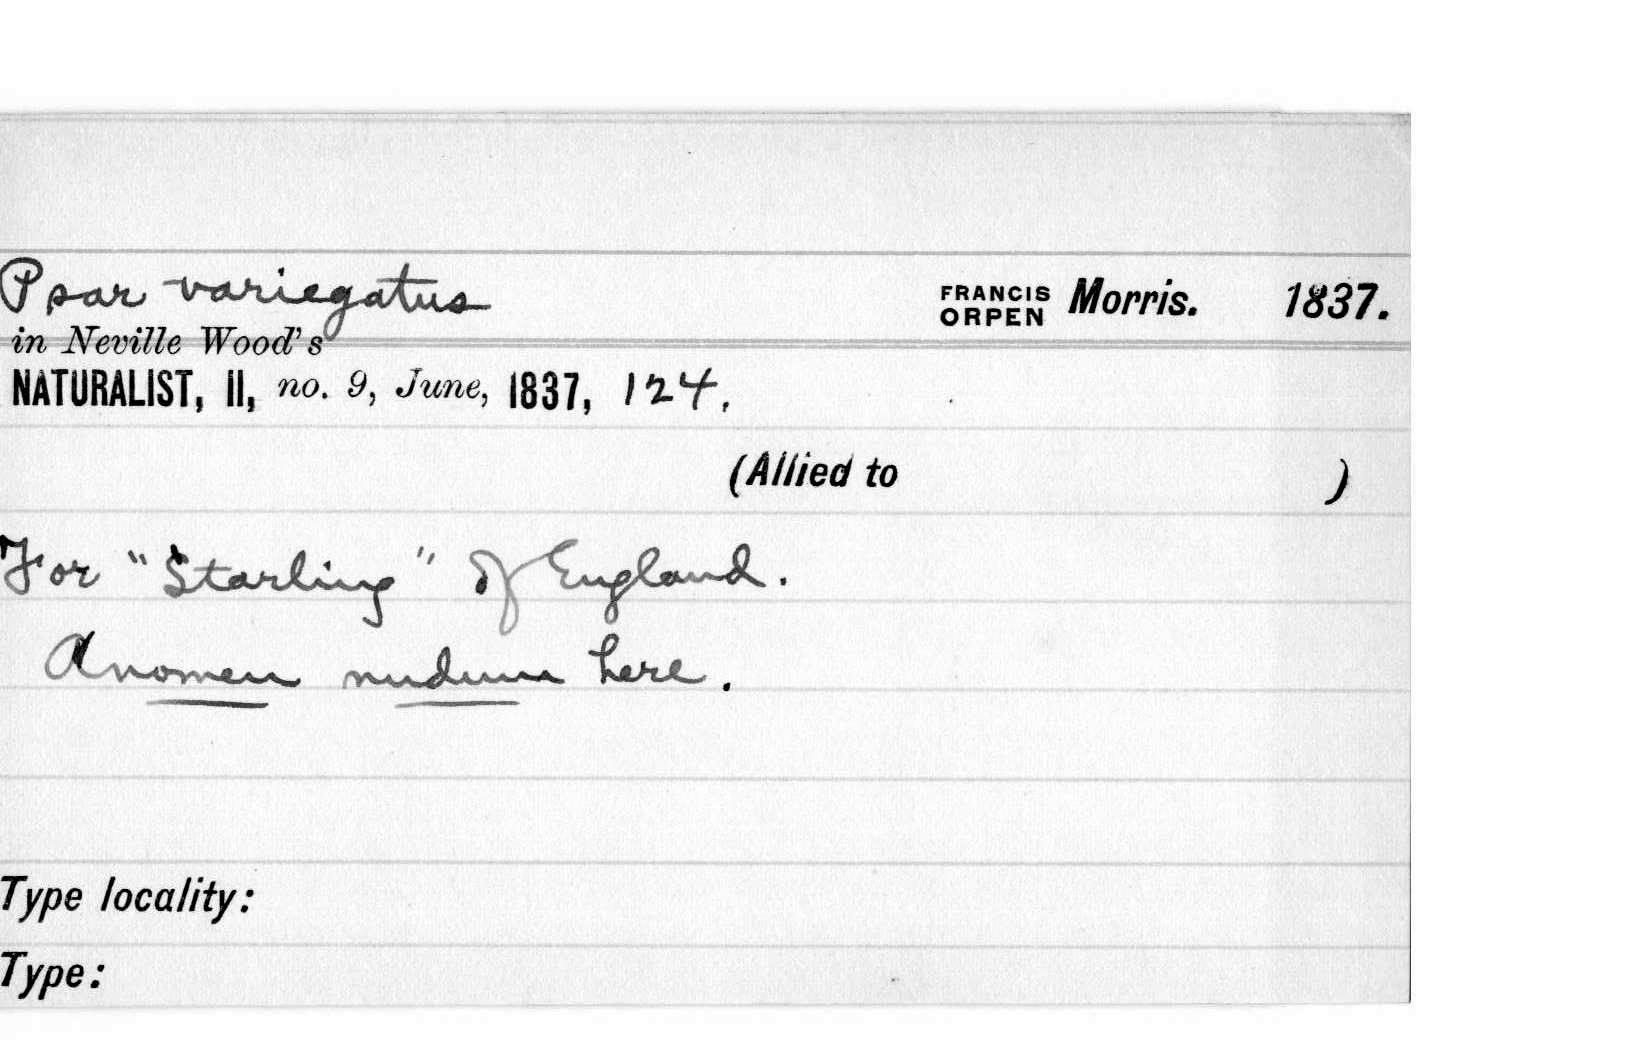 Psar variegatus FRANCIS ORPEN Morris. 1837.
in Neville Wood's
NATURALIST, II, no. 9, June, 1837, 124.
(Allied to )
For "Starling" of England.
A nomen nudum here.
Type locality:
Type: